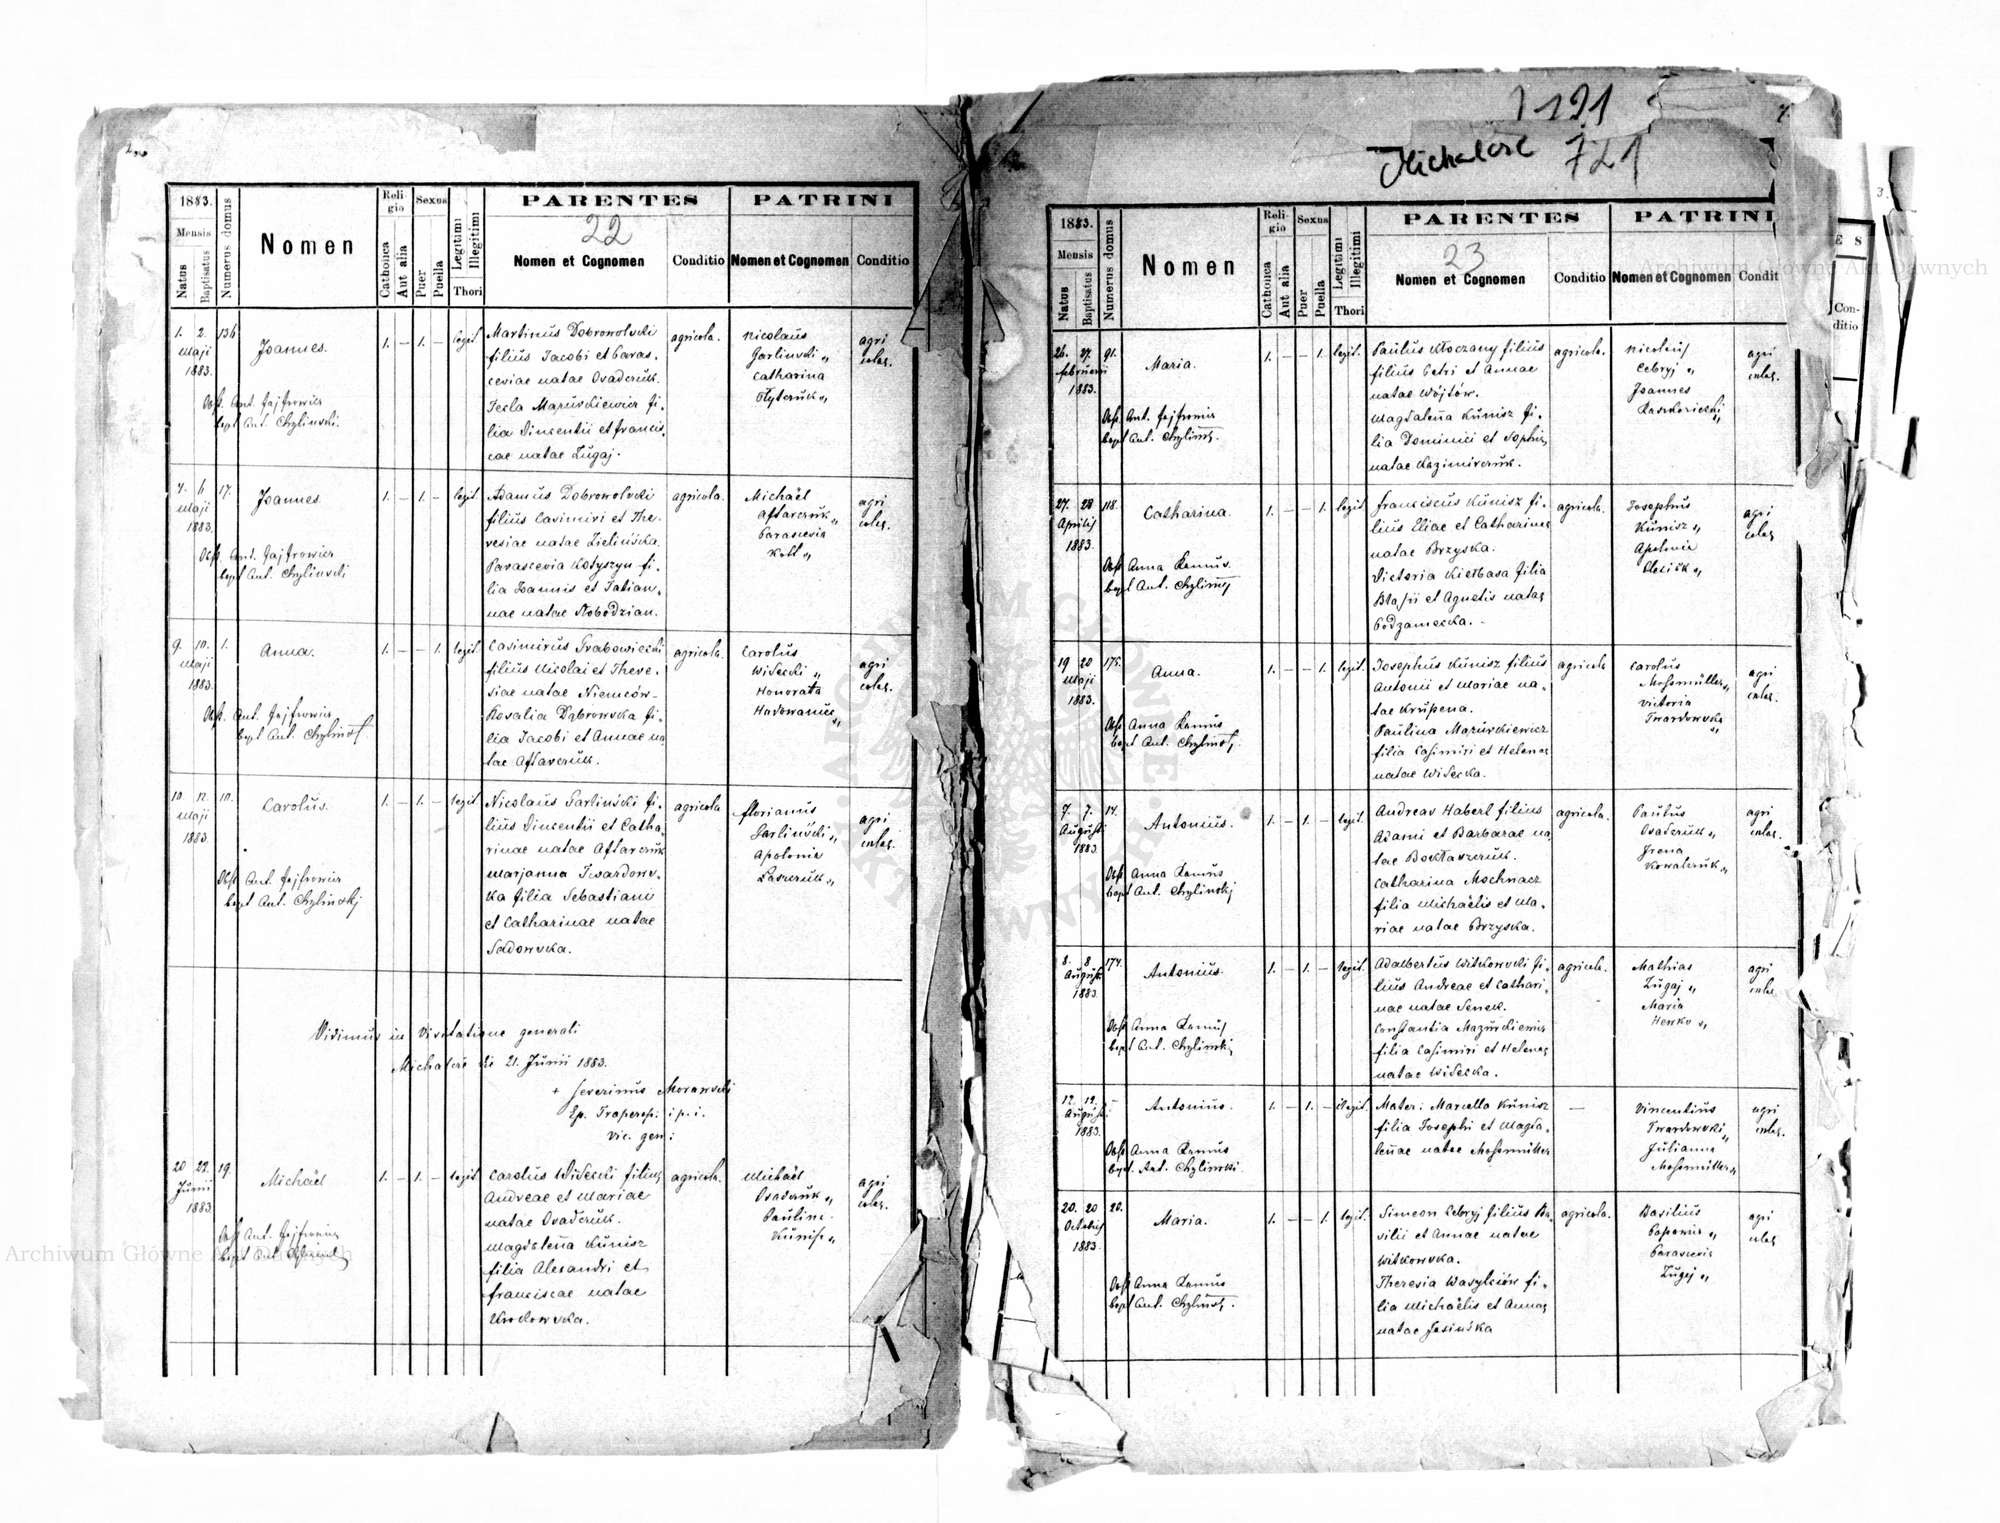 22
1883.
Mensis
Natus
Baptisatus
Numerus domus
Nomen
Religio
Catholica
Aut alia
Sexus
Puer
Puella
Legitimi
Illegitimi
Thori
PARENTES
Nomen et Cognomen
Conditio
PATRINI
Nomen et Cognomen
Conditio
1. 2.
Maji
1883.
136
Joannes.
Obst. Ant. Fejfrowicz
bapt Ant. Chylinski.
1. – 1. –
legit.
Martinus Dobrowolski
filius Jacobi et Paras-
ceviae natae Osadczuk.
Tecla Mazurkiewicz fi-
lia Vincentii et Francis-
cae natae Zugaj.
agricola.
Nicolaus
Garlinski "
Catharina
agri
colae.
17.
Maji
1883.
Joannes.
Obst. Ant. Fejfrowicz
bapt Ant. Chylinski
1. – 1. –
legit
Adamus Dobrowolski
filius Casimiri et The-
resiae natae Zielińska.
Parascevia Kotyszyn fi-
lia Joannis et Tatian-
nae natae
agricola.
Michaël
Aftarczuk "
Parascevia
agri
colae.
9. 10.
Maji
1883.
1.
Anna.
Obst. Ant. Fejfrowicz
bapt Ant. Chylinski
1. – – 1.
legit.
Casimirus Grabowiecki
filius Nicolai et There-
siae natae Niemców-
Rosalia Dąbrowska fi-
lia Jacobi et Annae na
tae Aftarczuk.
agricola.
Carolus
Widecki "
Honorata
agri
colae.
10. 12.
Maji
1883.
10.
Carolus.
Obst Ant. Fejfrowicz
bapt Ant. Chylinskj
1. – 1. –
legit.
Nicolaus Garliński fi-
lius Vincentii et Catha
rinae natae Aftarczuk
Marjanna Twardows-
ka filia Sebastiani
et Catharinae natae
Sadowska.
agricola
Florianus
Garliński "
Apolonia
agri
colae.
Vidimus in Visitatione generali
Michalcze die 21. Junii 1883.
+ Severinus Morawski
Ep. Trapezop. i.p.i.
vic. gen:
20 22.
Junii
1883.
19.
Michaël
Obst Ant. Fejfrowicz
1. – 1. –
legit.
Carolus Widecki filius
Andreae et Mariae
natae Osadczuk.
Magdalena Kunisz
filia Alexandri et
Franciscae natae
agricola.
Michaël
Osadczuk "
Paulina
Kunisz "
agri
colae.
Michalcze 721
23
1883.
Mensis
Natus
Baptisatus
Numerus domus
Nomen
Religio
Catholica
Aut alia
Sexus
Puer
Puella
Legitimi
Illegitimi
Thori
PARENTES
Nomen et Cognomen
Conditio
PATRINI
Nomen et Cognomen
Condit
26. 27.
Februarii
1883.
91.
Maria.
Obst Ant. Fejfrowicz
bapt Ant. Chylinski.
1. – – 1.
legit.
Paulus Kłoczany filius
filius Petri et Annae
natae Wójtów.
Magdalena Kunisz fi-
lia Dominici et Sophiae
natae Kazimirczuk.
agricola.
Nicolaus
Cebryj "
Joannes
agri
colae.
27. 28
Aprilis
1883.
118.
Catharina.
Obst Anna Remus.
bapt Ant. Chylinski
1. – – 1.
legit
Franciscus Kunisz fi-
lius Eliae et Catharinae
natae Brzyska.
Victoria Kiełbasa filia
Blasii et Agnetis natae
Podzamecka. -
agricola.
Josephus
Kunisz "
Apolonia
agri
colae
19 20
Maji
1883.
175.
Anna.
Obst Anna Remus
bapt Ant. Chylinski.
1. – – 1.
legit.
Josephus Kunisz filius
Antonii et Mariae na-
tae Krupena.
Paulina Mazurkiewicz
filia Casimiri et Helenae
natae Widecka.
agricola
Carolus
Mosemüller "
Victoria
Twardowska
"
agri
colae.
7. 7.
Augusti
1883.
14.
Antonius.
Obst Anna Remus
bapt Ant. Chylinskj
1. – 1. –
legit.
Andreas Haberl filius
Adami et Barbarae na
tae Bocłaszczuk.
Catharina Mochnacz
filia Michaëlis et Ma-
riae natae Brzyska.
agricola.
Paulus
Osadczuk "
Irena
Kowalczuk "
agri
colae.
8. 8
Augusti
1883.
174.
Antonius.
Obst Anna Remus
bapt Ant. Chylinskj
1. – 1. –
legit.
Adalbertus Witkowski fi-
lius Andreae et Cathari-
nae natae Senek.
Constantia Mazurkiewicz
filia Casimiri et Helenae
natae Widecka.
agricola.
Mathias
Zugaj "
Maria
Henko "
agri
colae
12. 12.
Augusti
1883.
–
Antonius.
Obst Anna Remus
bapt. Ant. Chylinski.
1. – 1. –
illegit.
Mater: Marcella Kunisz
filia Josephi et Magda-
lenae natae Mosemüller
—
Vincentius
Twardowski "
Julianna
Mosemüller "
agri
colae.
20. 20
Octobris
1883.
20.
Maria.
Obst Anna Remus
bapt Ant. Chylinski.
1. – – 1.
legit.
Simeon Cebryj filius Ba-
silii et Annae natae
Witkowska.
Theresia Wasylciów fi-
lia Michaëlis et Annae
natae Jasińska
agricola.
Basilius
Parascevia
Zugaj "
agri
colae
Con-
ditio
ARCHIWUM GŁÓWNE AKT DAWNYCH
Archiwum Główne Akt Dawnych
Archiwum Główne Akt Dawnych